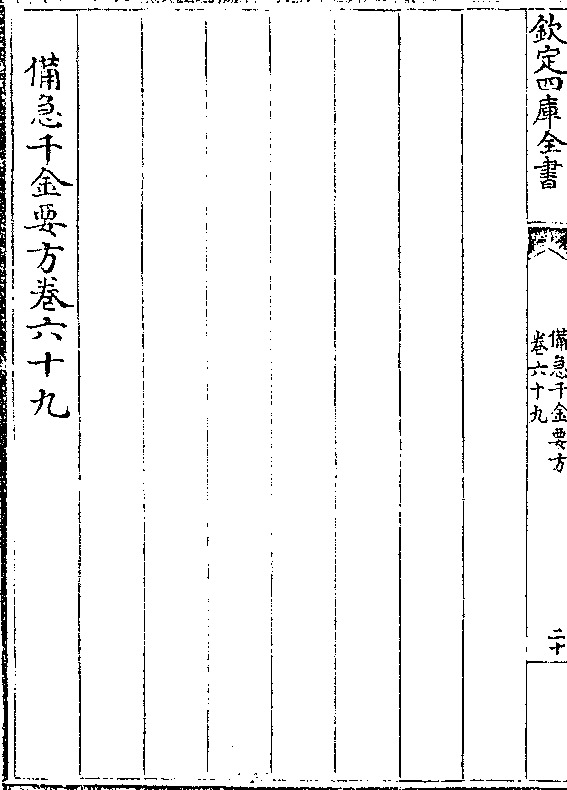 欽定四庫全書
備急千金要方
卷六十九
二十
備急千金要方卷六十九